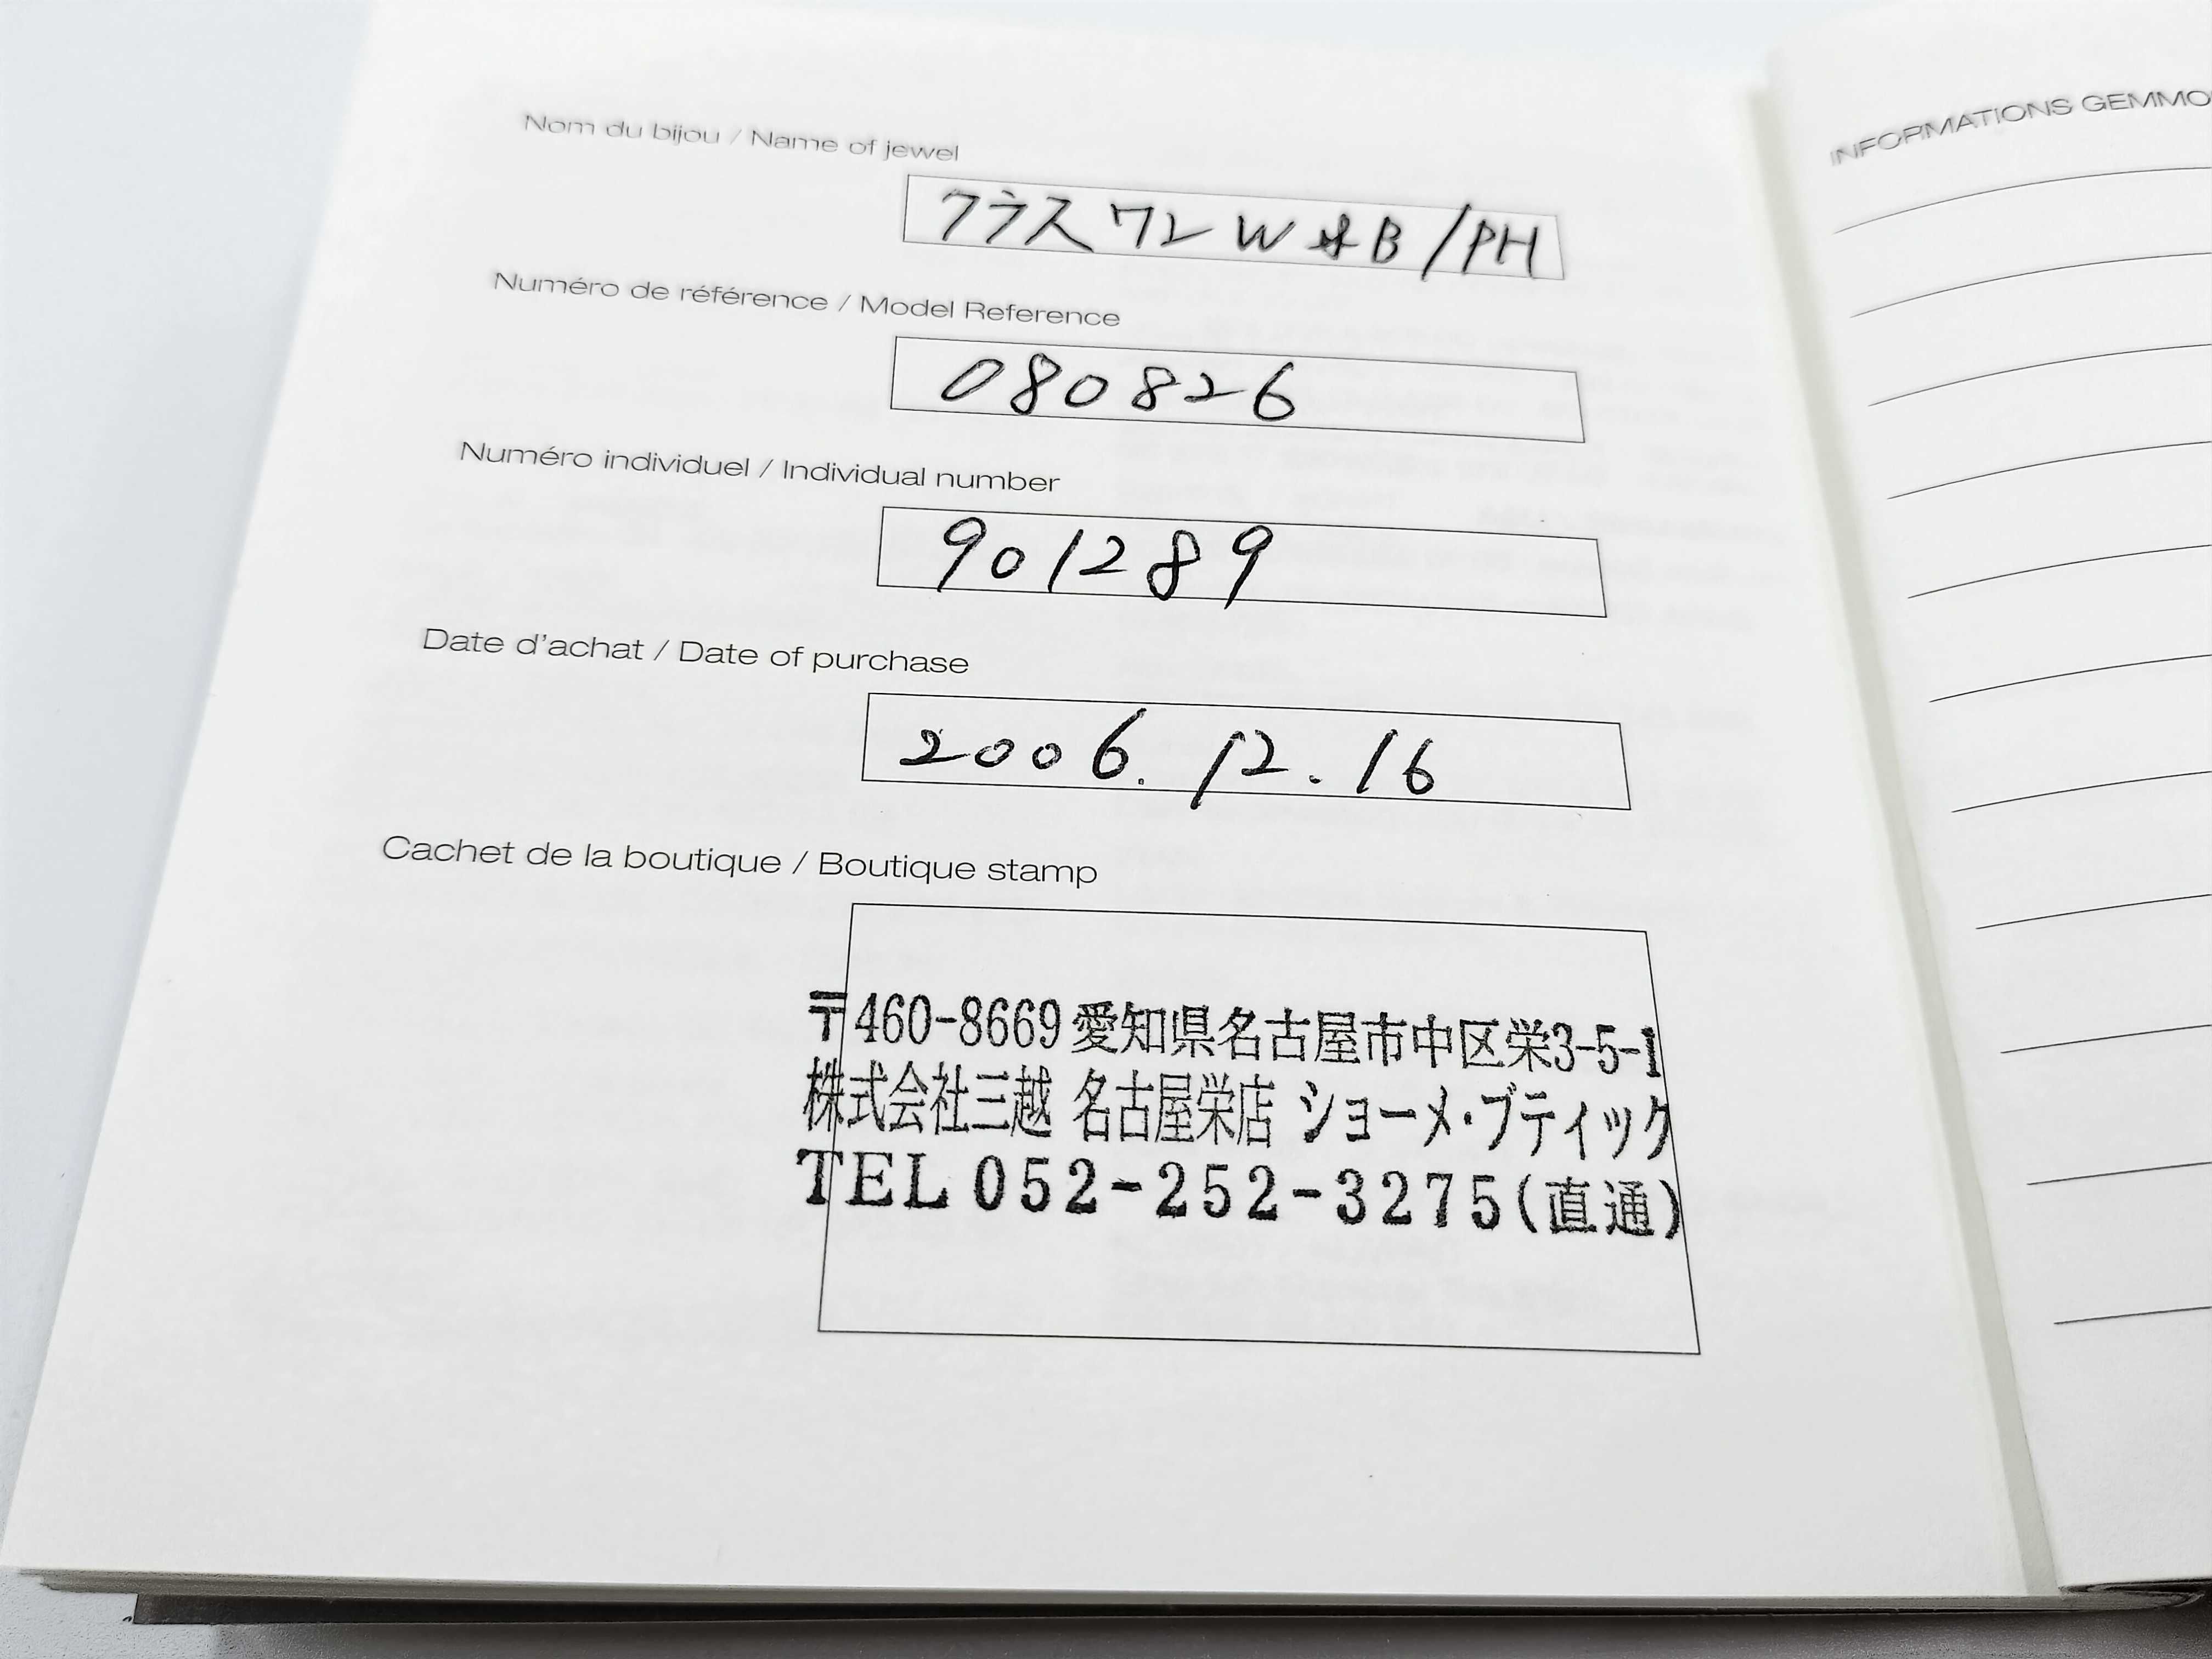 Nom du bijou / Name of jewel
クラスワン W B/PH
Numéro de référence / Model Reference
080826
Numéro individuel / Individual number
901289
Date d'achat / Date of purchase
2006.12.16
Cachet de la boutique / Boutique stamp
〒460-8669愛知県名古屋市中区栄3-5-1
株式会社三越 名古屋栄店 ショーメ・ブティック
TEL 052-252-3275(直通)
INFORMATIONS